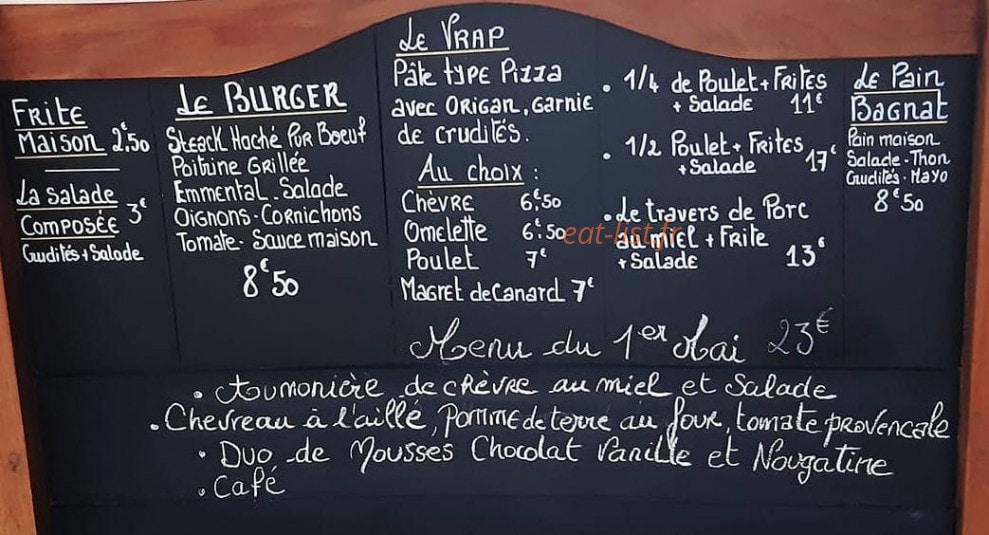 Frite
Maison 2€,50
La Salade
Composée 3€
Crudités + Salade
Le BURGER
Steack Haché Pur Boeuf
Poitrine Grillée
Emmental - Salade
Oignons - Cornichons
Tomate - Sauce maison
8€50
Le Vrap
Pâte type Pizza
avec Origan, Garnie
de Crudités.
Au choix :
Chèvre 6€50
Omelette 6€50
Poulet 7€
Magret de Canard 7€
• 1/4 de Poulet + Frites
+ Salade 11€
• 1/2 Poulet + Frites
+ Salade 17€
• Le travers de Porc
au miel + Frite
+ Salade 13€
eat-list.fr
Le Pain
Bagnat
Pain maison
Salade - Thon
Crudités - Mayo
8€50
Menu du 1er Mai 23€
• Aumonière de chèvre au miel et Salade
• Chevreau à l'aillé, pomme de terre au four, tomate provencale
• Duo de Mousses Chocolat Vanille et Nougatine
• Café